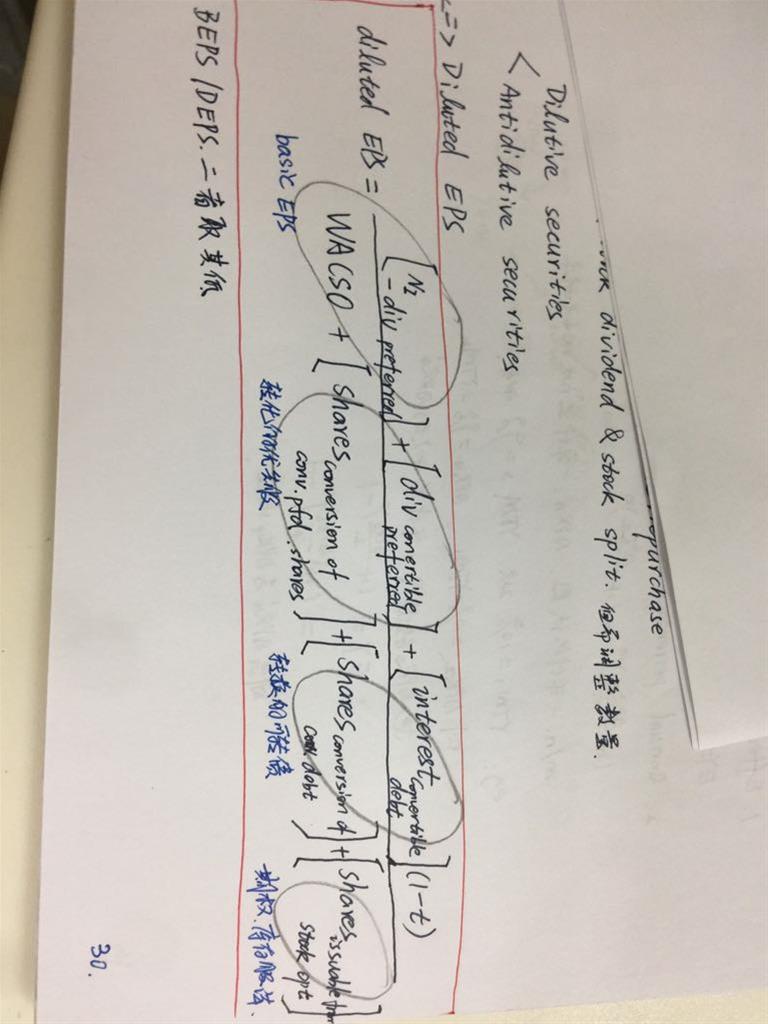 purchase
dividend & stock split. 但需调整数量.
Dilutive securities
< Antidilutive securities
=> Diluted EPS
diluted EPS = [NI - div preferred] + [div convertible preferred] + [interest convertible debt](1-t)
WACSO + [shares conversion of conv. pfd. shares] + [shares conversion of conv. debt] + [shares issuable from stock opt]
basic EPS 转化的优先股 转换的可转债 期权. 库存股法.
BEPS / DEPS. 二者取其低
30.